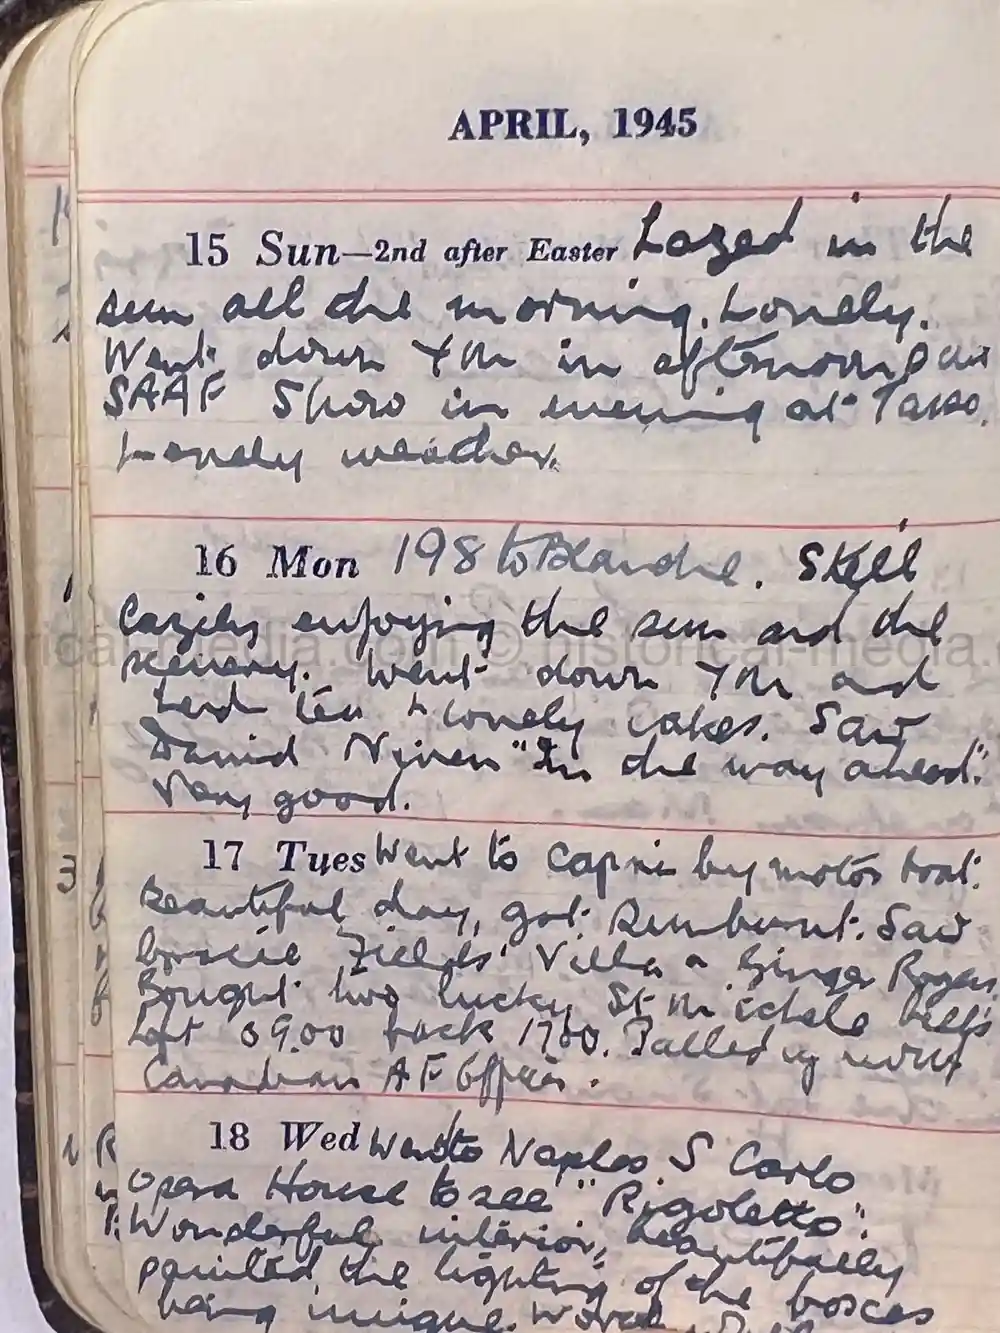 APRIL, 1945
15 Sun—2nd after Easter Lazed in the
sun all the morning. Lovely.
Went down YM in afternoon
SAAF Show in evening at Tasso.
Lovely weather.
16 Mon 198 to Blanche. Still
lazily enjoying the sun and the
scenery. Went down YM and
had tea & lovely cakes. Saw
David Niven "In the way ahead".
Very good.
17 Tues Went to Capri by motor boat.
Beautiful day, got sunburnt. Saw
Gracie Fields' Villa Ginger Rogers
Bought two lucky St Michele bells
Left 0900 back 1700. Palled up
Canadian AF Officer.
18 Wed Went to Naples S Carlo
Opera House to see "Rigoletto".
Wonderful interior, beautifully
painted, the lighting of the boxes
being unique.
historical-media.com © historical-media.